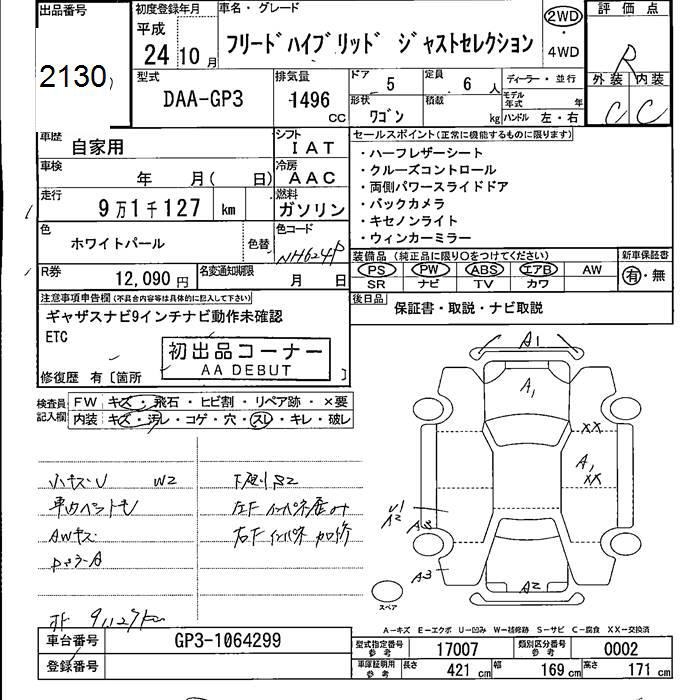 出品番号
2130
初度登録年月
平成
24 10 月
車名・グレード
フリードハイブリッド ジャストセレクション
2WD
・
4WD
評価点
R
外装 内装
C C
型式
DAA-GP3
排気量
1496 CC
ドア 5
定員 6 人
ディーラー・並行
形状 ワゴン
積載 kg
モデル年式 年
ハンドル 左・右
車歴 自家用
シフト IAT
車検 年 月( 日)
冷房 AAC
走行 9万1千127 km
燃料 ガソリン
色 ホワイトパール
色替
色コード NH624P
R券 12,090 円
名変通知期限 月 日
セールスポイント(正常に機能するものに限ります)
・ハーフレザーシート
・クルーズコントロール
・両側パワースライドドア
・バックカメラ
・キセノンライト
・ウィンカーミラー
装備品 (純正品に限り〇をつけてください)
PS PW ABS エアB AW
SR ナビ TV カワ
新車保証書
有・無
後日品 保証書・取説・ナビ取説
注意事項申告欄(不具合内容等は具体的に記入して下さい)
ギャザスナビ9インチナビ動作未確認
ETC
初出品コーナー
AA DEBUT
修復歴 有〔箇所 〕
検査員記入欄
FW キズ・飛石・ヒビ割・リペア跡・×要
内装 キズ・汚レ・コゲ・穴・スレ・キレ・破レ
小キズU W2
AWキズ
A1
A1
XX
A1
XX
U1
A2
A3
A3
A2
スペア
A-キズ E-エクボ U-凹み W-補修跡 S-サビ C-腐食 XX-交換済
車台番号 GP3-1064299
登録番号
型式指定番号 参考 17007
類別区分番号 参考 0002
車庫証明用 参考 長さ 421 cm 幅 169 cm 高さ 171 cm